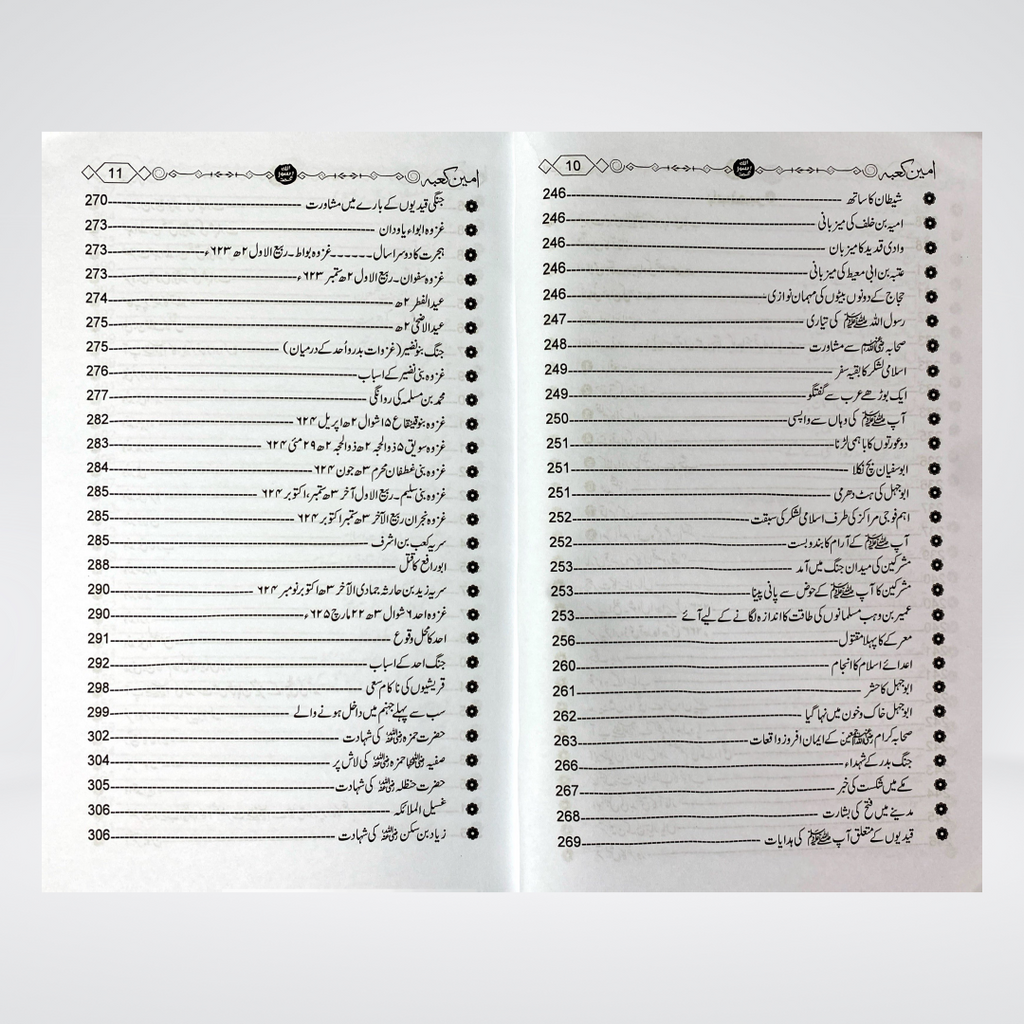 امین کعبہ 10
شیطان کا ساتھ 246
امیہ بن خلف کی میزبانی 246
وادی قدید کا میزبان 246
عتبہ بن ابی معیط کی میزبانی 246
حجاج کے دونوں بیٹوں کی مہمان نوازی 246
رسول اللہ ﷺ کی تیاری 247
صحابہ رضی اللہ عنہم سے مشاورت 248
اسلامی لشکر کا بقیہ سفر 249
ایک بوڑھے عرب سے گفتگو 249
آپ ﷺ کی وہاں سے واپسی 250
دو عورتوں کا باہمی لڑنا 251
ابوسفیان بچ نکلا 251
ابوجہل کی ہٹ دھرمی 251
اہم فوجی مراکز کی طرف اسلامی لشکر کی سبقت 252
آپ ﷺ کے آرام کا بندوبست 252
مشرکین کی میدان جنگ میں آمد 253
مشرکین کا آپ ﷺ کے حوض سے پانی پینا 253
عمیر بن وہب مسلمانوں کی طاقت کا اندازہ لگانے کے لیے آئے 253
معرکے کا پہلا مقتول 256
اعدائے اسلام کا انجام 260
ابوجہل کا حشر 261
ابوجہل خاک و خون میں نہا گیا 262
صحابہ کرام رضی اللہ عنہم کے ایمان افروز واقعات 263
جنگ بدر کے شہداء 266
مکے میں شکست کی خبر 267
مدینے میں فتح کی بشارت 268
قیدیوں کے متعلق آپ ﷺ کی ہدایات 269
امین کعبہ 11
جنگی قیدیوں کے بارے میں مشاورت 270
غزوہ ابواء یا ودان 273
ہجرت کا دوسرا سال ------ غزوہ بواط۔ ربیع الاول ۲ھ ۶۲۳ء 273
غزوہ سفوان۔ ربیع الاول ۲ھ ستمبر ۶۲۳ء 273
عید الفطر ۲ھ 274
عید الاضحیٰ ۲ھ 275
جنگ بنو نضیر (غزوات بدر و اُحد کے درمیان) 275
غزوہ بنی نضیر کے اسباب 276
محمد بن مسلمہ کی روانگی 277
غزوہ بنو قینقاع ۱۵ شوال ۲ھ اپریل ۶۲۴ 282
غزوہ سویق ۵ ذوالحجہ ۲ھ ذوالحجہ ۲ھ ۲۹ مئی ۶۲۴ 283
غزوہ بنی غطفان محرم ۳ھ جون ۶۲۴ 284
غزوہ بنی سلیم۔ ربیع الاول آخر ۳ھ ستمبر، اکتوبر ۶۲۴ 285
غزوہ نجران ربیع الآخر ۳ھ ستمبر اکتوبر ۶۲۴ 285
سریہ کعب بن اشرف 285
ابو رافع کا قتل 288
سریہ زید بن حارثہ جمادی الآخر ۳ھ اکتوبر نومبر ۶۲۴ 290
غزوہ احد ۶ شوال ۳ھ ۲۲ مارچ ۶۲۵ء 290
احد کا محل وقوع 291
جنگ احد کے اسباب 292
قریشیوں کی ناکام سعی 298
سب سے پہلے جہنم میں داخل ہونے والے 299
حضرت حمزہ رضی اللہ عنہ کی شہادت 302
صفیہ رضی اللہ عنہا حمزہ رضی اللہ عنہ کی لاش پر 304
حضرت حنظلہ رضی اللہ عنہ کی شہادت 305
غسیل الملائکہ 306
زیاد بن سکن رضی اللہ عنہ کی شہادت 306